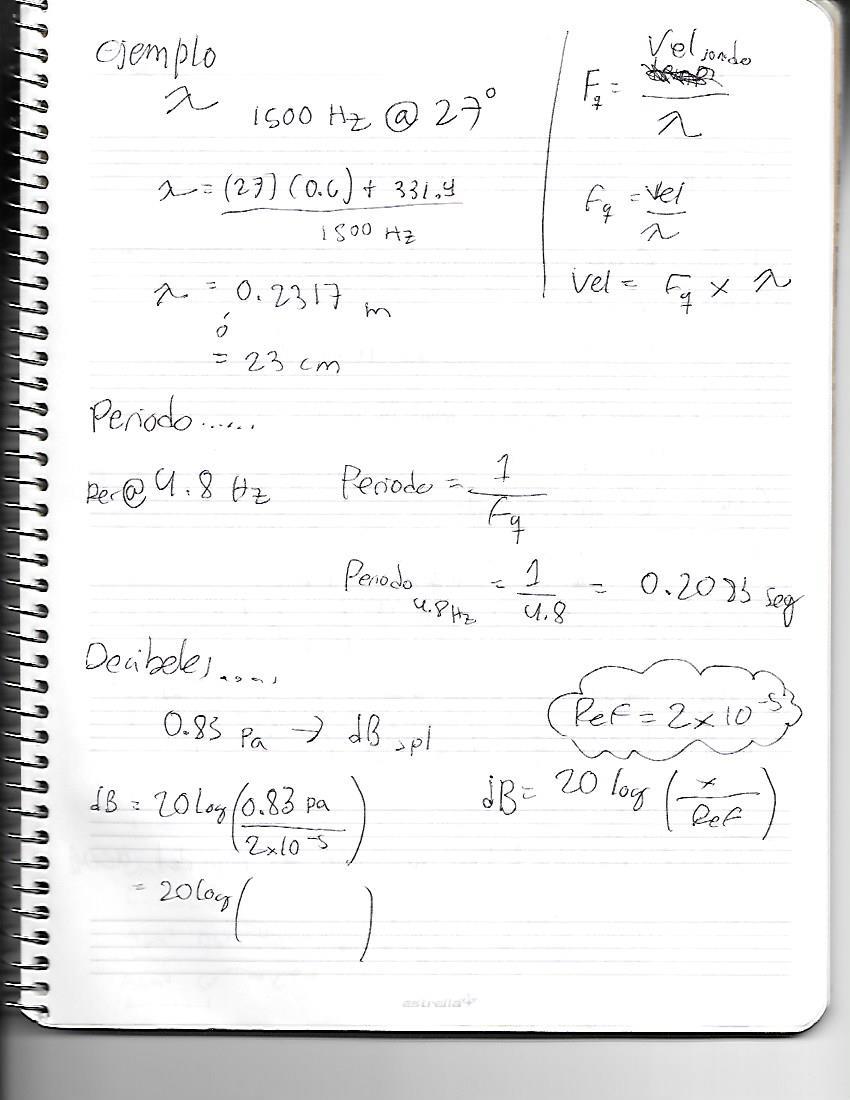 Ejemplo
λ 1500 Hz @ 27°
λ = (27) (0.6) + 331.4
1500 Hz
λ = 0.2317 m
ó
= 23 cm
Fq = Vel sonido
λ
Fq = Vel
λ
Vel = Fq × λ
Periodo......
Per@ 4.8 Hz
Periodo = 1
Fq
Periodo 4.8 Hz = 1 = 0.2083 seg
4.8
Decibeles.....
0.83 Pa → dB spl
Ref = 2×10⁻⁵
dB = 20 log (0.83 pa)
2×10⁻⁵
= 20 log ( )
dB = 20 log (x)
Ref
estrella